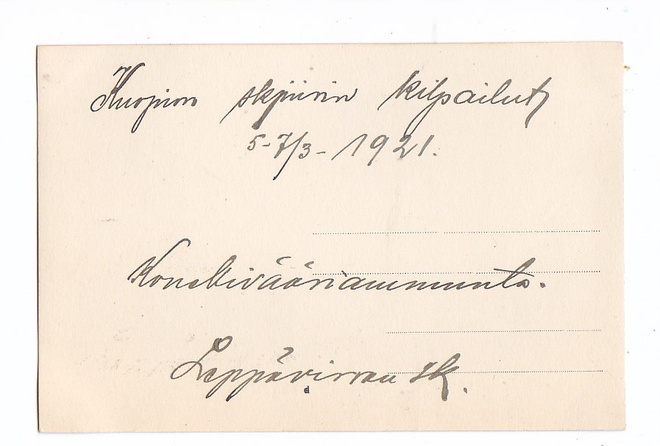 Kuopion skpiirin kilpailut
5-7/3- 1921.
Konekivääriammunta.
Leppävirran sk.